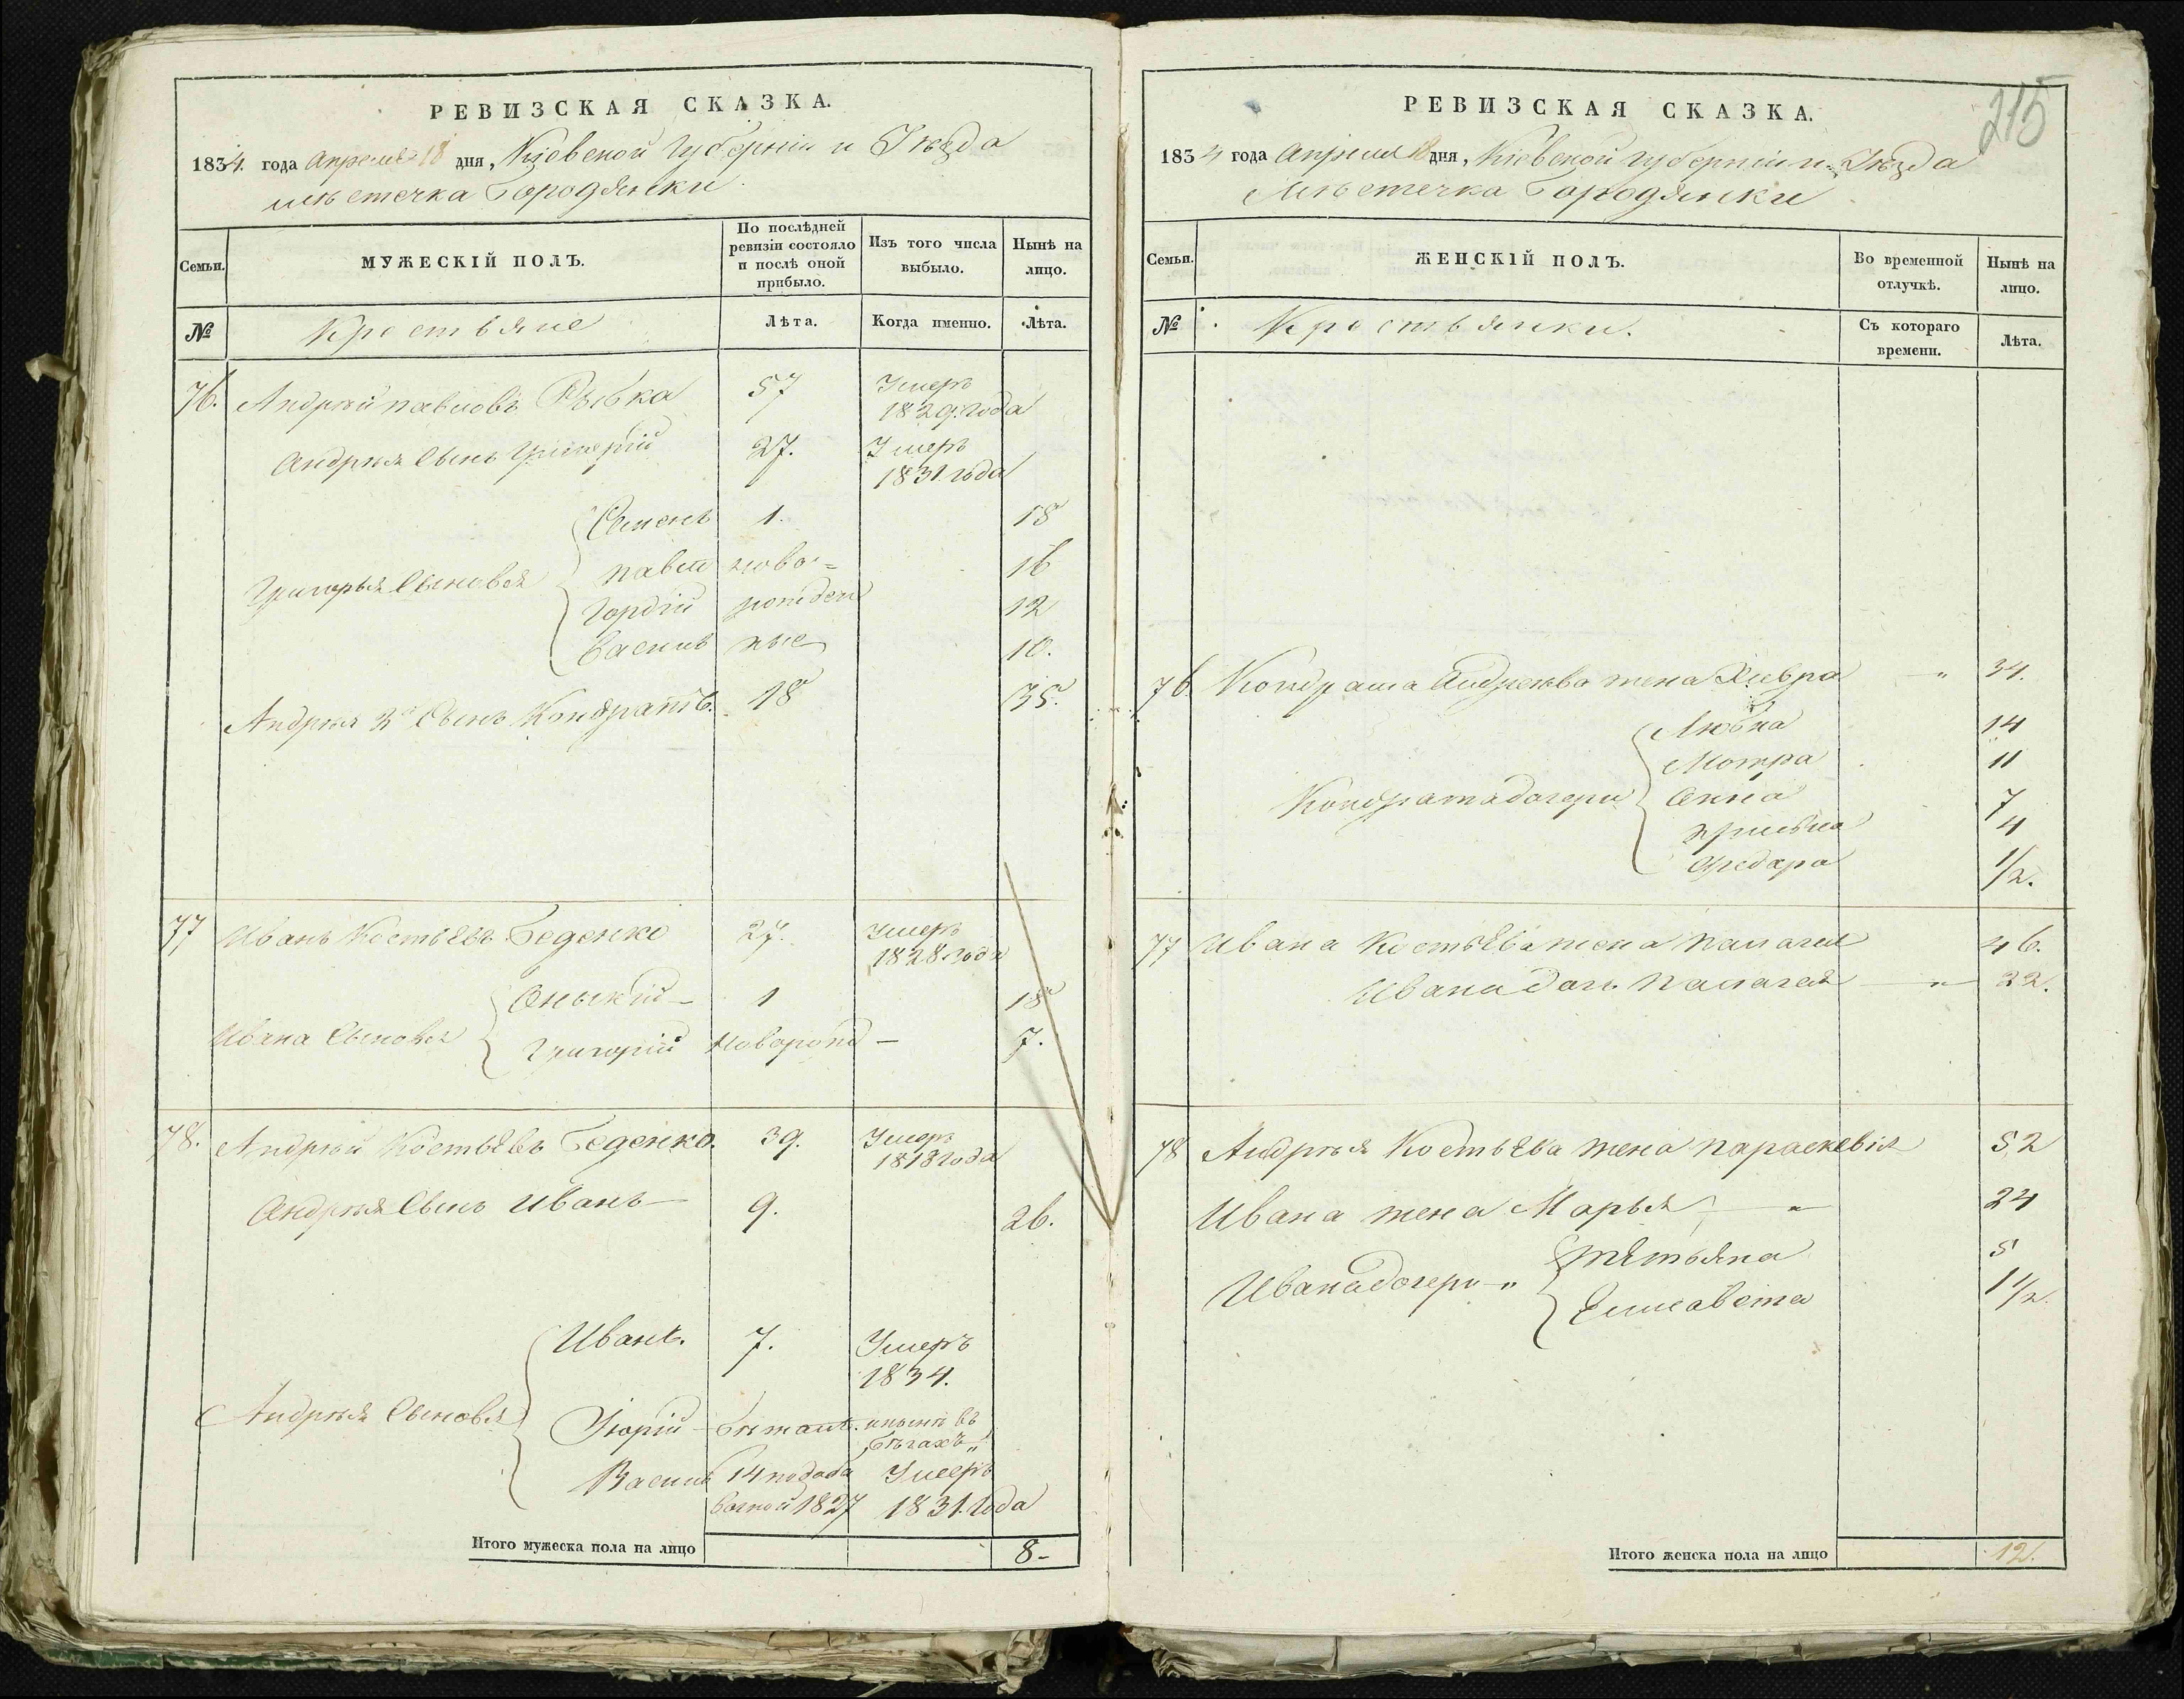 РЕВИЗСКАЯ СКАЗКА.
1834. года Апреля 18 дня, Кіевской Губерніи и Уѣзда
мѣстечка Бородянки
Семьи.
МУЖЕСКІЙ ПОЛЪ.
По послѣдней ревизіи состояло и послѣ оной прибыло.
Изъ того числа выбыло.
Нынѣ на лицо.
№
Крестьяне
Лѣта.
Когда именно.
Лѣта.
76. Андрѣй Павловъ Рыбка 57 Умеръ
1829. года
Андрѣя Сынъ Григорій 27. Умеръ
1831. года
Семенъ 1. 18
Григорья Сыновья Павел ново= 16
Гордій рожден 12
Василь ные 10.
Андрѣя 2й Сынъ Кондратъ. 18 35.
77 Иванъ Костьевъ Беденко 27. Умеръ
1828 года
Оныкій - 1 18
Ивана Сыновья Григорій Новорожд - 7.
78. Андрѣй Костьевъ Беденко. 39. Умеръ
1818 года
Андрѣя Сынъ Иванъ 9. 26.
Иванъ. 7. Умеръ
1834.
Андрѣя Сыновья Юрій - бѣжалъ. и нынѣ въ
бѣгахъ„
Василь 14 по доба Умеръ
вочной 1827 1831. Года
Итого мужеска пола на лицо 8-
215
РЕВИЗСКАЯ СКАЗКА.
1834 года Апреля 18 дня, Кіевской Губерніи и Уѣзда
Мѣстечка Бородянки
Семьи.
ЖЕНСКІЙ ПОЛЪ.
Во временной отлучкѣ.
Нынѣ на лицо.
№
Крестьянки.
Съ котораго времени.
Лѣта.
76 Кондрата Андреева жена Хивря " 34.
Любка 14
Мотра 11
Кондрата дочери Анна 7
4
Федора 1/2.
77 Ивана Костьева жена Палагея 46.
Ивана дочь Палагея " 22.
78 Андрѣя Костьева жена Параскевія 52
Ивана жена Марья " 24
Ивана дочери " Татьяна 5
Елисавета 1 1/2.
Итого женска пола на лицо 12.